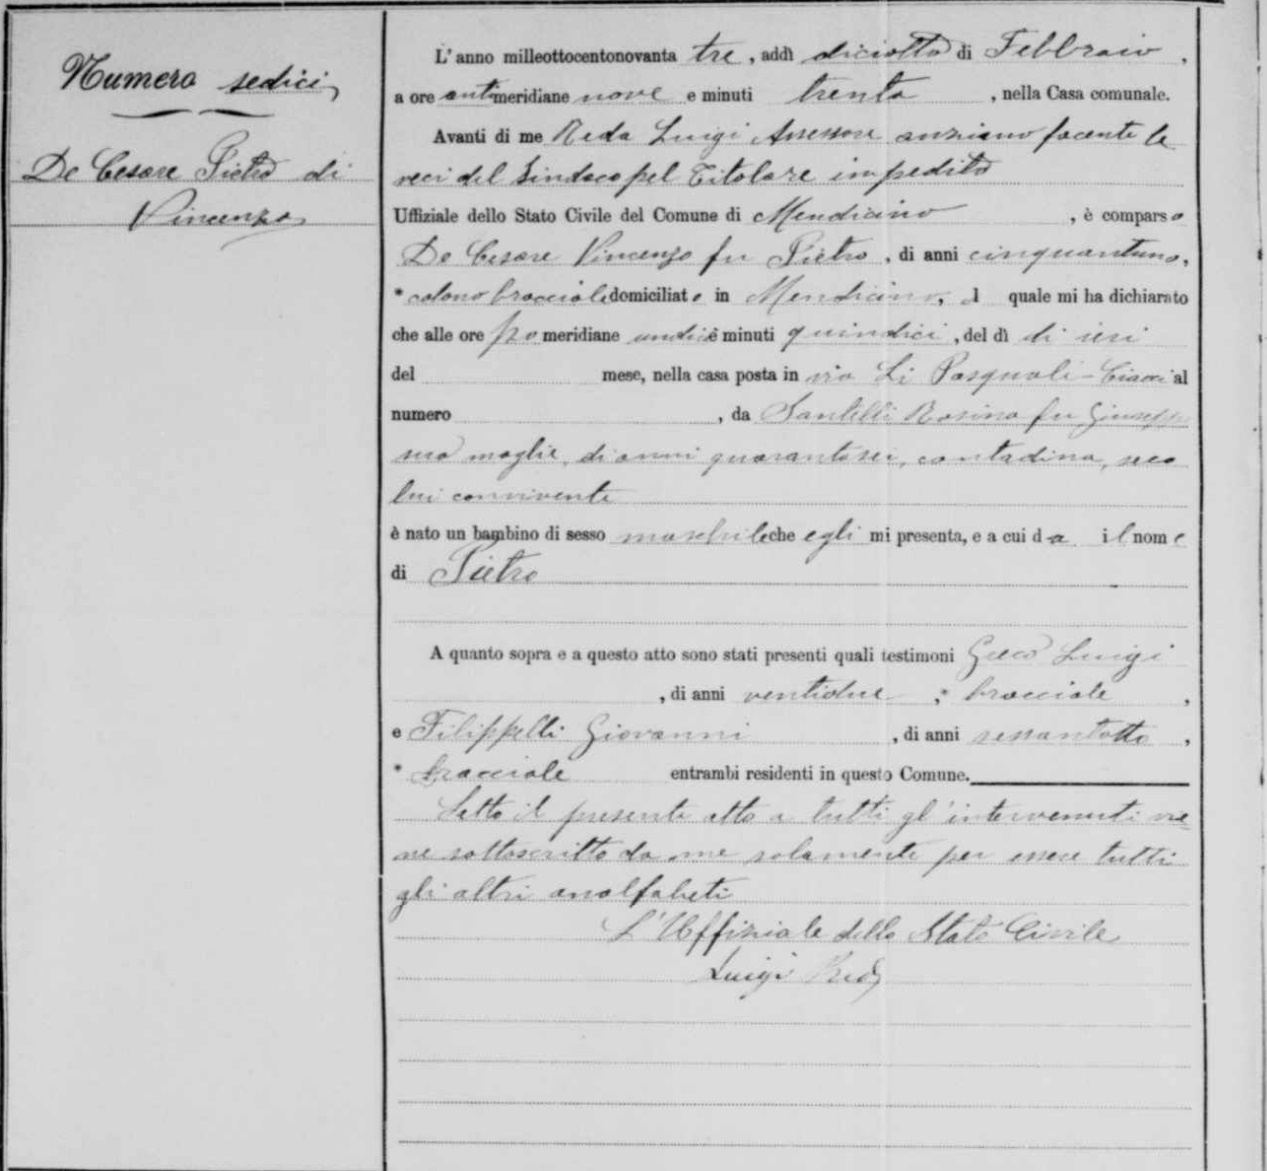 Numero sedici
De Cesare Pietro di
Vincenzo
L'anno milleottocentonovanta tre, addì diciotto di Febbraio,
a ore antimeridiane nove e minuti trenta, nella Casa comunale.
Avanti di me Reda Luigi Assessore anziano facente le
veci del Sindaco pel Titolare impedito
Uffiziale dello Stato Civile del Comune di Mendicino, è comparso
De Cesare Vincenzo fu Pietro, di anni cinquantuno,
* colono bracciale domiciliato in Mendicino, il quale mi ha dichiarato
che alle ore pomeridiane undici e minuti quindici, del dì di ieri
del mese, nella casa posta in via Li Pasquali - al
numero , da Santelli Rosina fu Giuseppe
sua moglie, di anni quarantasei, contadina, seco
lui convivente
è nato un bambino di sesso maschile che egli mi presenta, e a cui da il nome
di Pietro
A quanto sopra e a questo atto sono stati presenti quali testimoni Greco Luigi
, di anni ventidue, * bracciale,
e Filippelli Giovanni, di anni sessantotto,
* bracciale entrambi residenti in questo Comune.
Letto il presente atto a tutti gl'intervenuti vie=
ne sottoscritto da me solamente per essere tutti
gli altri analfabeti
L'Uffiziale dello Stato Civile
Luigi Reda